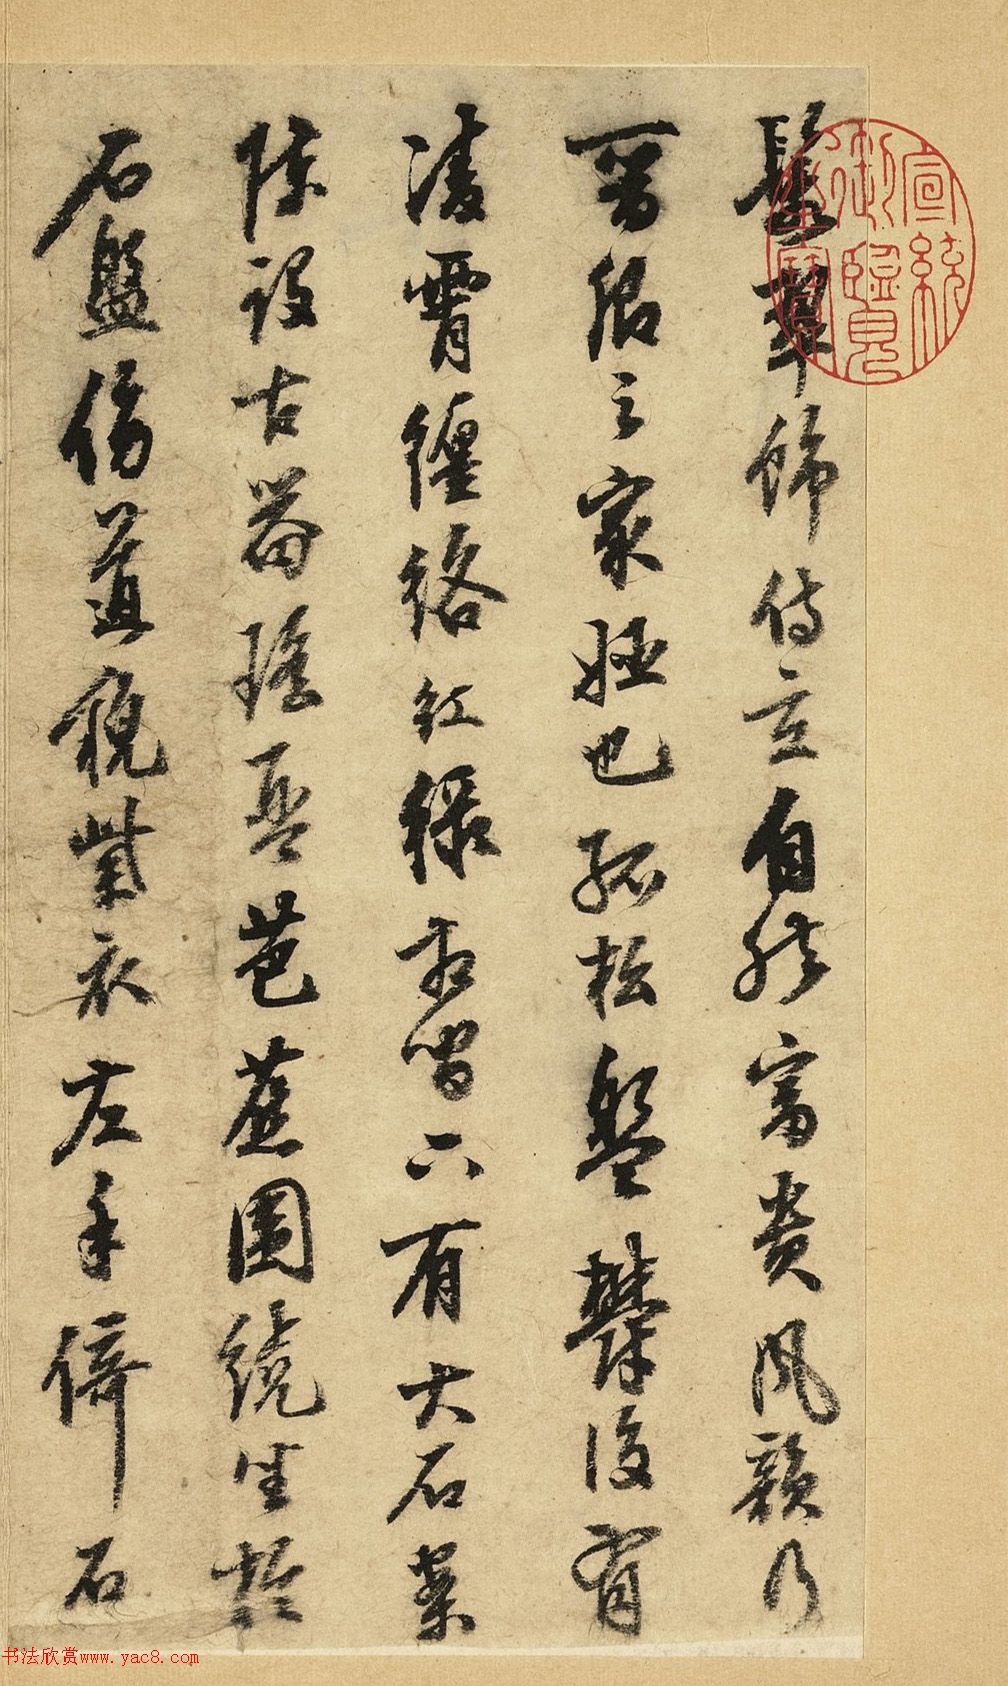 鬟翠飾侍立自然富貴風韻乃
晉卿之家姬也孤松盤鬱後有
凌霄纏絡紅綠相間下有大石案
陳設古器瑤琴芭蕉圍繞坐於
石盤傍道帽紫衣左手倚石
宣統
御覽
之寶
书法欣赏www.yac8.com